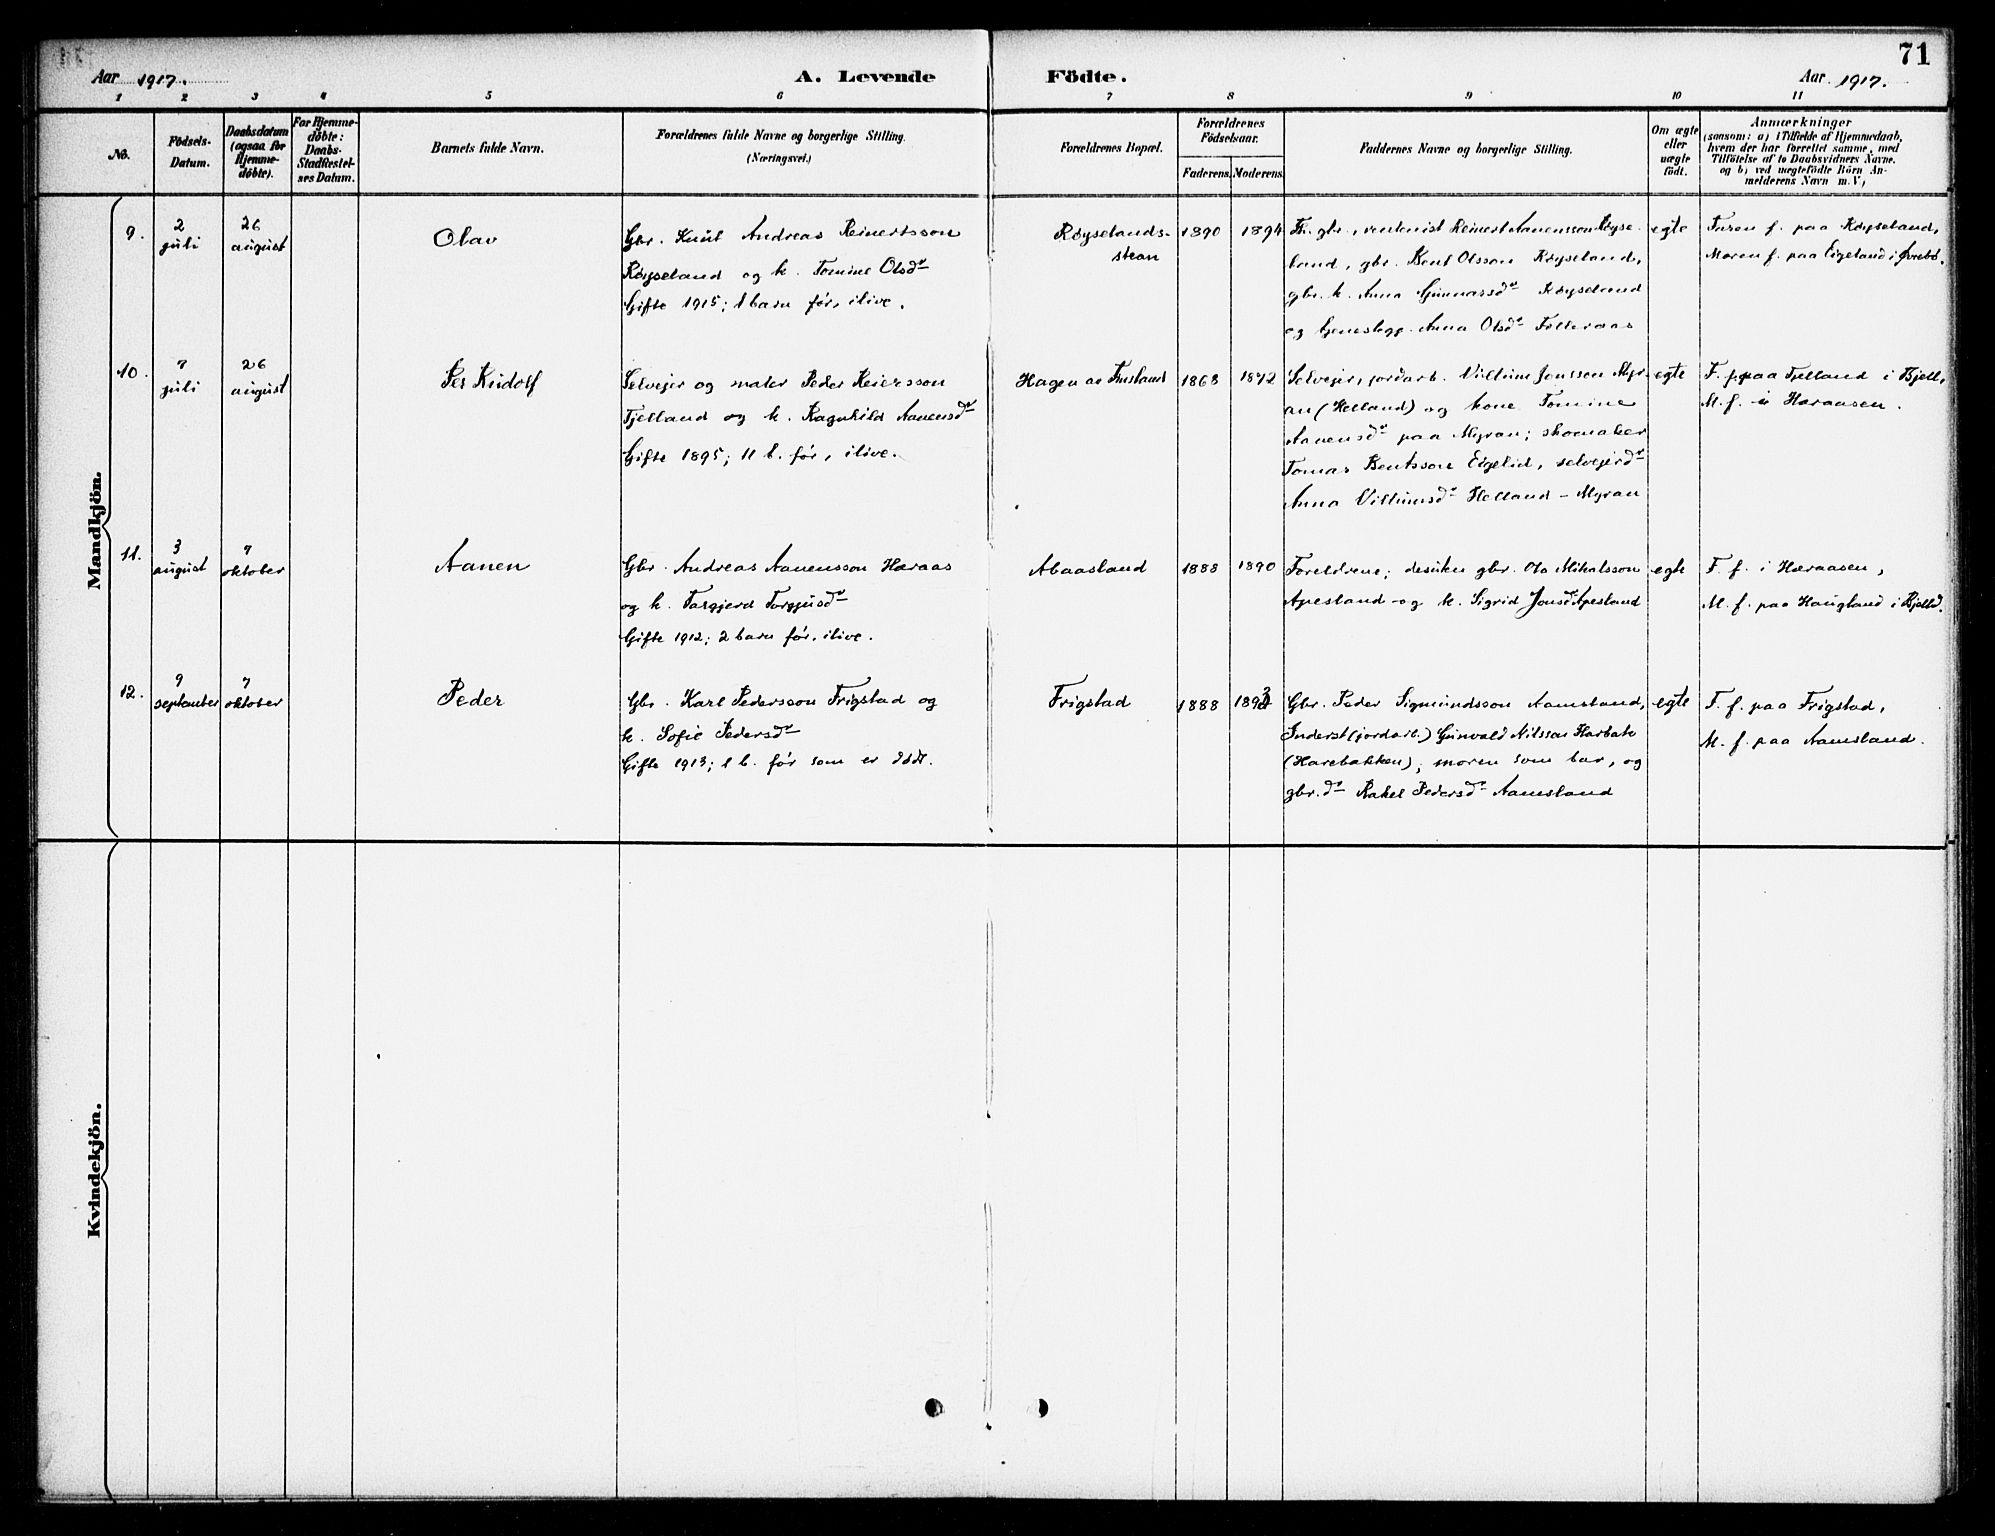 71
Aar 1917.
A. Levende Födte.
Aar 1917.
1 2 3 4 5 6 7 8 9 10 11
No.
Födsels-Datum.
Daabsdatum (ogsaa for Hjemmedöbte).
For Hjemmedöbte: Daabs-Stadfæstelses Datum.
Barnets fulde Navn.
Forældrenes fulde Navne og borgerlige Stilling.
(Næringsvei.)
Forældrenes Bopæl.
Forældrenes Födselsaar.
Faderens. Moderens.
Faddernes Navne og borgerlige Stilling.
Om ægte eller uægte födt.
Anmærkninger
(saasom: a) i Tilfælde af Hjemmedaab,
hvem der har forrettet samme, med
Tilföielse af to Daabsvidners Navne.
og b) ved uægtefödte Börn An-
melderens Navn m. V.)
Mandkjön.
9.
2 juli
26 august
Olav
Gbr. Knut Andreas Reinertsson
Røyseland og k. Tomine Olsdr
Gifte 1915; 1 barn før, ilive.
Røyselands-
stean
1890
1894
Fh. gbr., rentenist Reinert Aanensson Røyse-
land, gbr. Bent Olsson Røyseland,
gbr. k. Anna Gunnarsdr Røyseland
og tjenestepg. Anna Olsdr
egte
Faren f. paa Røyseland,
Moren f. paa Eigeland i Øvrebø.
10.
7 juli
26 august
Per Rudolf
Selvejer og maler Peder Reiersson
Fjelland og k. Ragnhild Aanensdr
Gifte 1895; 11 b. før, ilive.
Hagen av
1868
1872
Selvejer, jordarb. Villum Jonsson Myr-
an (Helland) og kone Tomine
Aanensdr paa Myran; skomaker
Tomas Bentsson Eigelid, selvejerdr
Anna Villumsdr Helland - Myran
egte
F. f. paa Fjelland i Bjell.
M. f. i Haraasen.
11.
3 august
7 oktober
Aanen
Gbr. Andreas Aanensson Haraas
og k. Torgjerd Torgjusdr
Gifte 1912; 2 barn før, ilive.
Abaasland
1888
1890
Foreldrene; desuten gbr. Ola Mikalsson
Apesland og k. Sigrid Jonsdr Apesland
egte
F. f. i Haraasen,
M. f. paa Haugland i Bjelld.
12.
9 september
7 oktober
Peder
Gbr. Karl Pedersson Frigstad og
k. Sofie Pedersdr
Gifte 1913; 1 b. før som er død.
Frigstad
1888
1893
Gbr. Peder Sigmundsson Aamsland,
Inderst (jordarb.) Gunvald Nilsson Harbak
(Harebakken); moren som bar, og
gbr.dr Rakel Pedersdr Aamsland
egte
F. f. paa Frigstad,
M. f. paa Aamsland.
Kvindekjön.